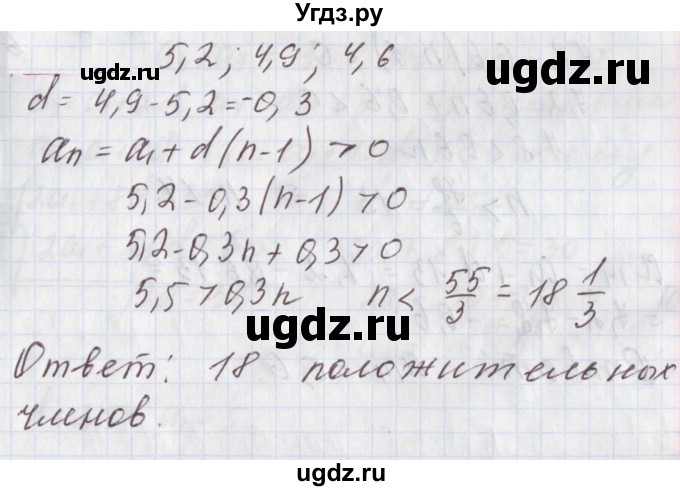 Угдз.ру
5,2; 4,9; 4,6
ugdz.ru
ugdz.ru
d = 4,9 - 5,2 = -0,3
an = a1 + d(n-1) > 0
5,2 - 0,3(n-1) > 0
5,2 - 0,3n + 0,3 > 0
5,5 > 0,3n n < 55/3 = 18 1/3
ugdz.ru
ugdz.ru
Ответ: 18 положительных
членов.
ugdz.ru